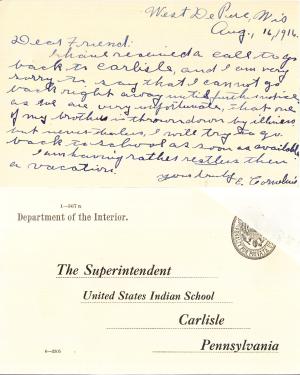 West De Pere, Wis
Aug. 16/916.
Dear Friend:
I have received a call to go
back to Carlisle, and I am very
sorry to say that I cannot go
back right away until further notice
as we are very unfortunate, that one
of my brothers is thrown down by illness
but nevertheless, I will try to go
back to school as soon as available
I am having rather restless then
a vacation.
Yours truly E. Cornelius
1—967 a
Department of the Interior.
The Superintendent
United States Indian School
Carlisle
Pennsylvania